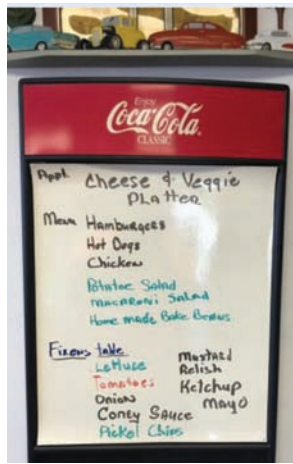 Enjoy
Coca-Cola
CLASSIC
Appt. Cheese & Veggie
Platter
Menu Hamburgers
Hot Dogs
Chicken
Potatoe Salad
Macaroni Salad
Home made Bake Beans
Fixens table
Lettuce
Tomatoes
Onion
Coney Sauce
Pickel Chips
Mustard
Relish
Ketchup
Mayo